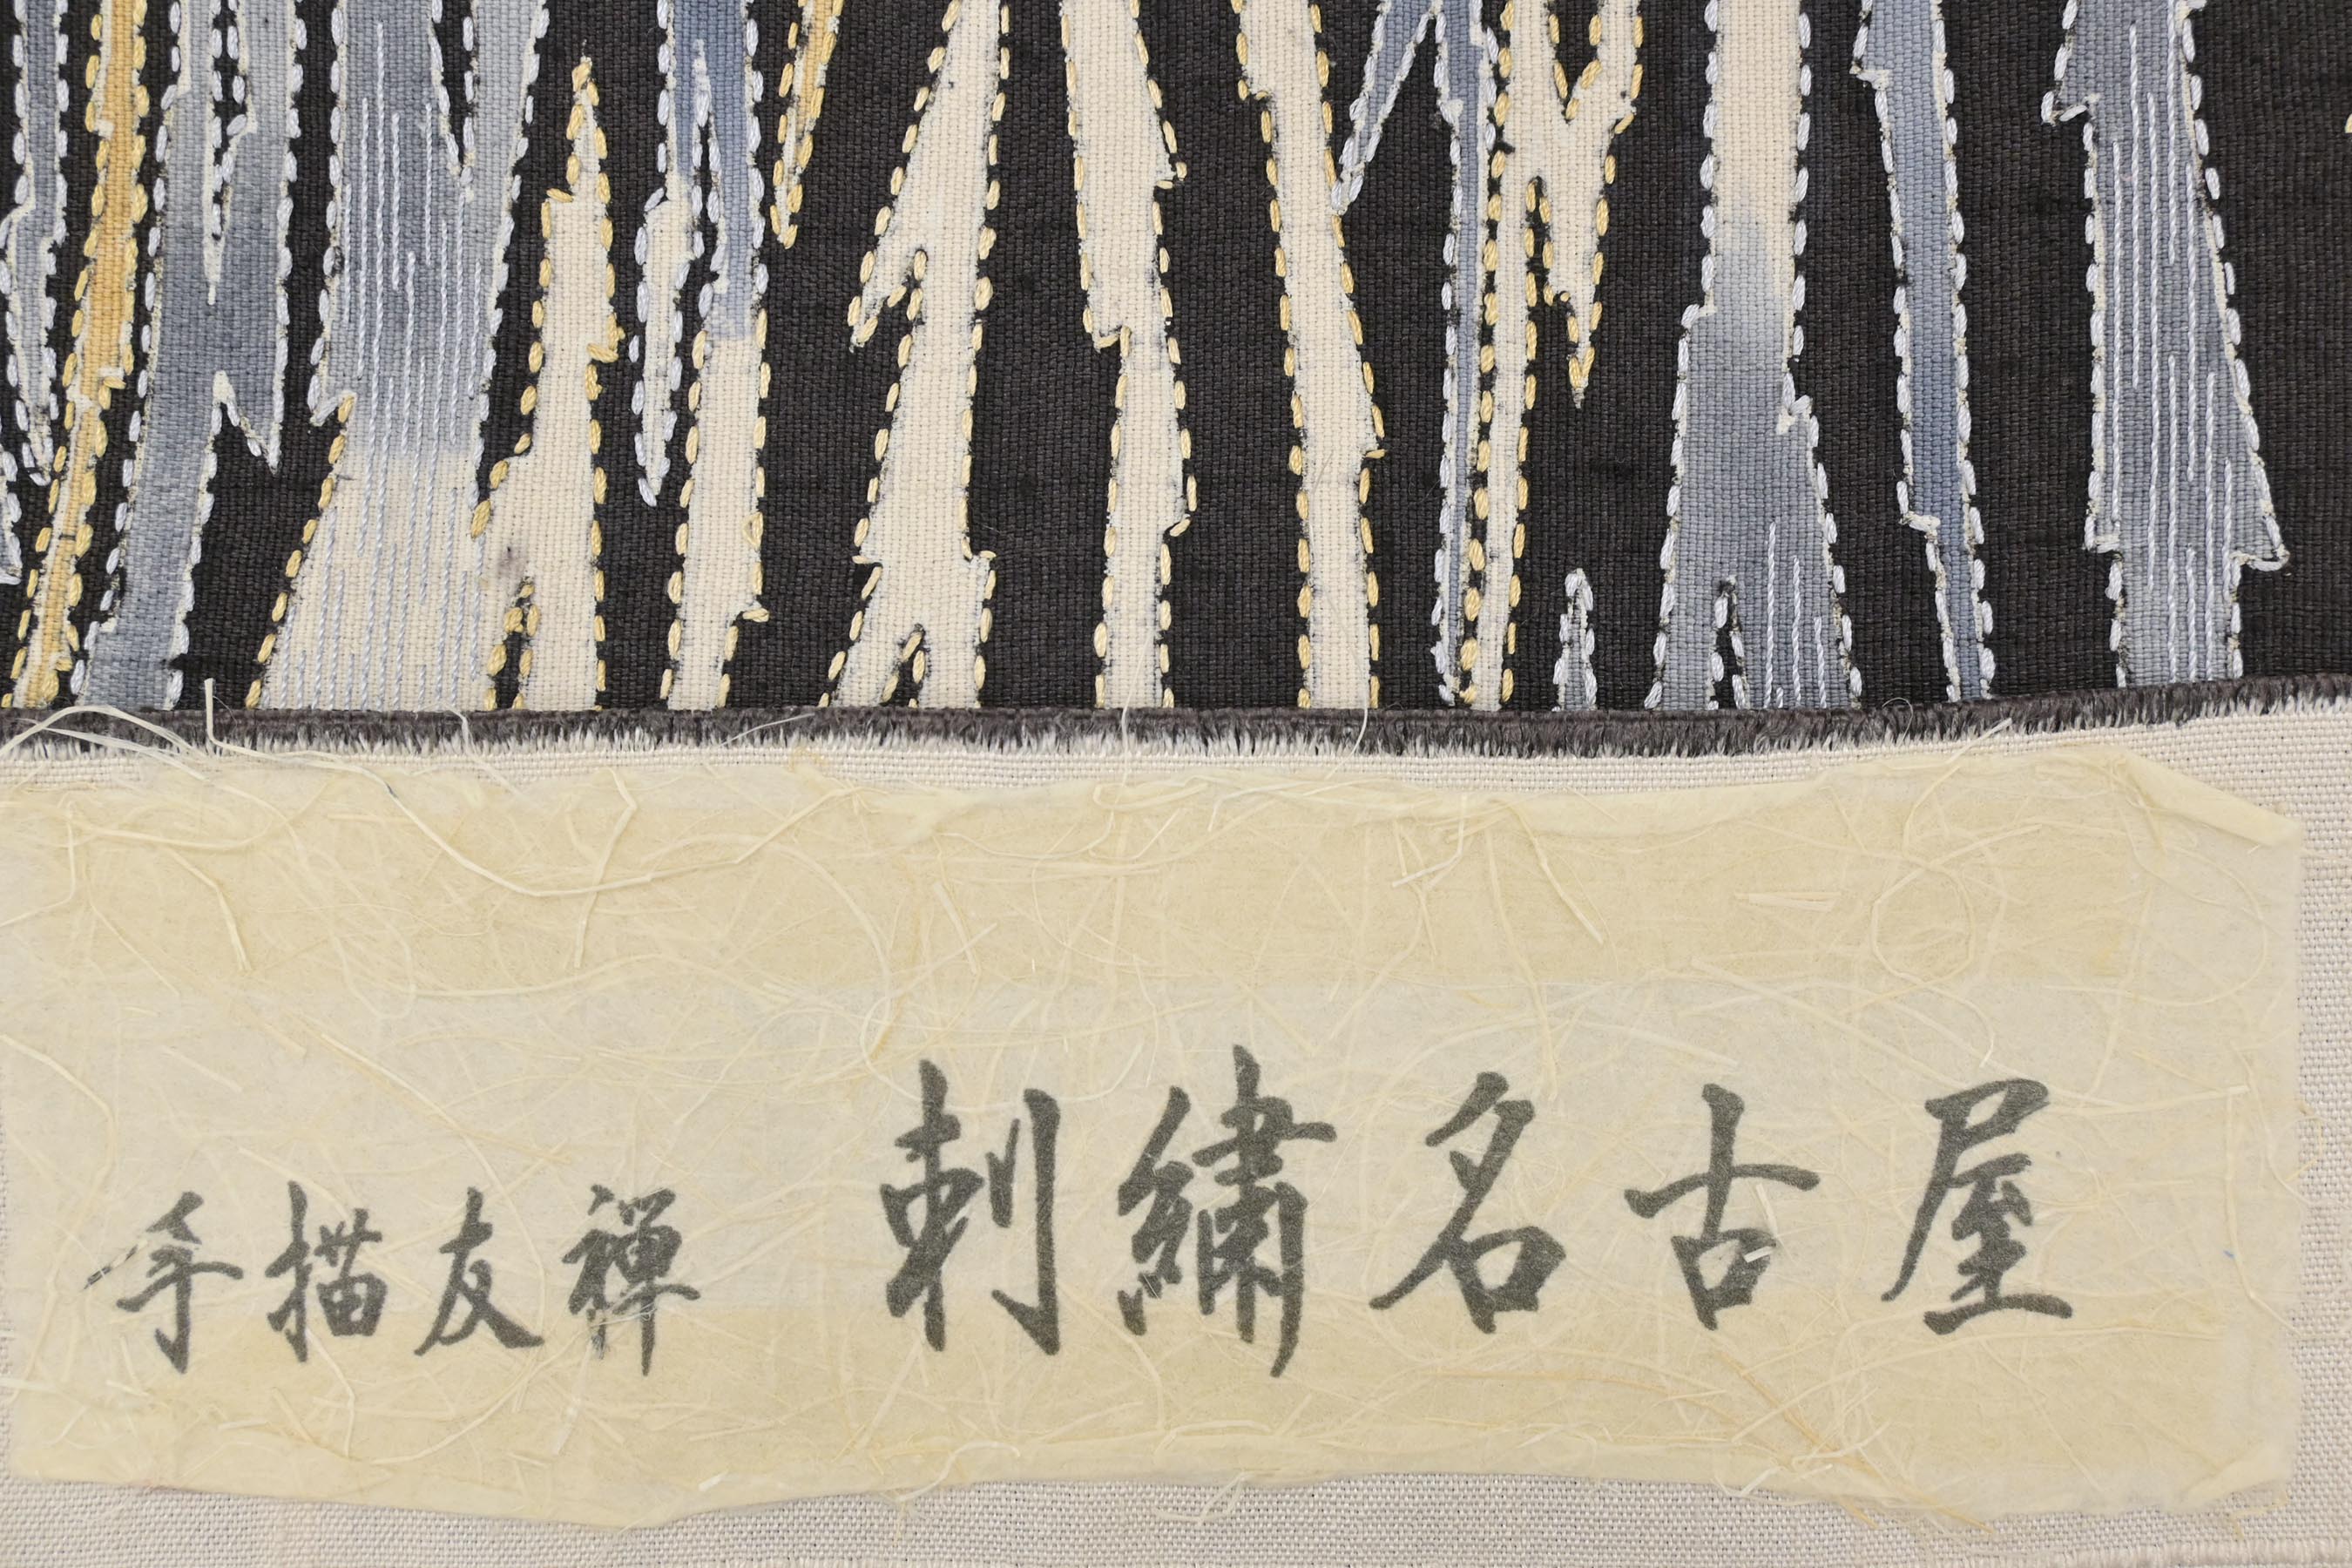 手描友禅 刺繍名古屋